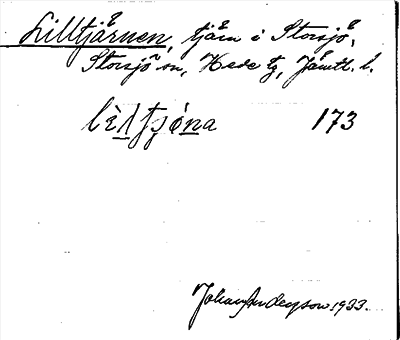 Lilltjärnen, tjärn i Storsjö,
Storsjö sn, Hede tg, Jämtl. l.
lèltjǿna 173
Johan Anderson 1933.